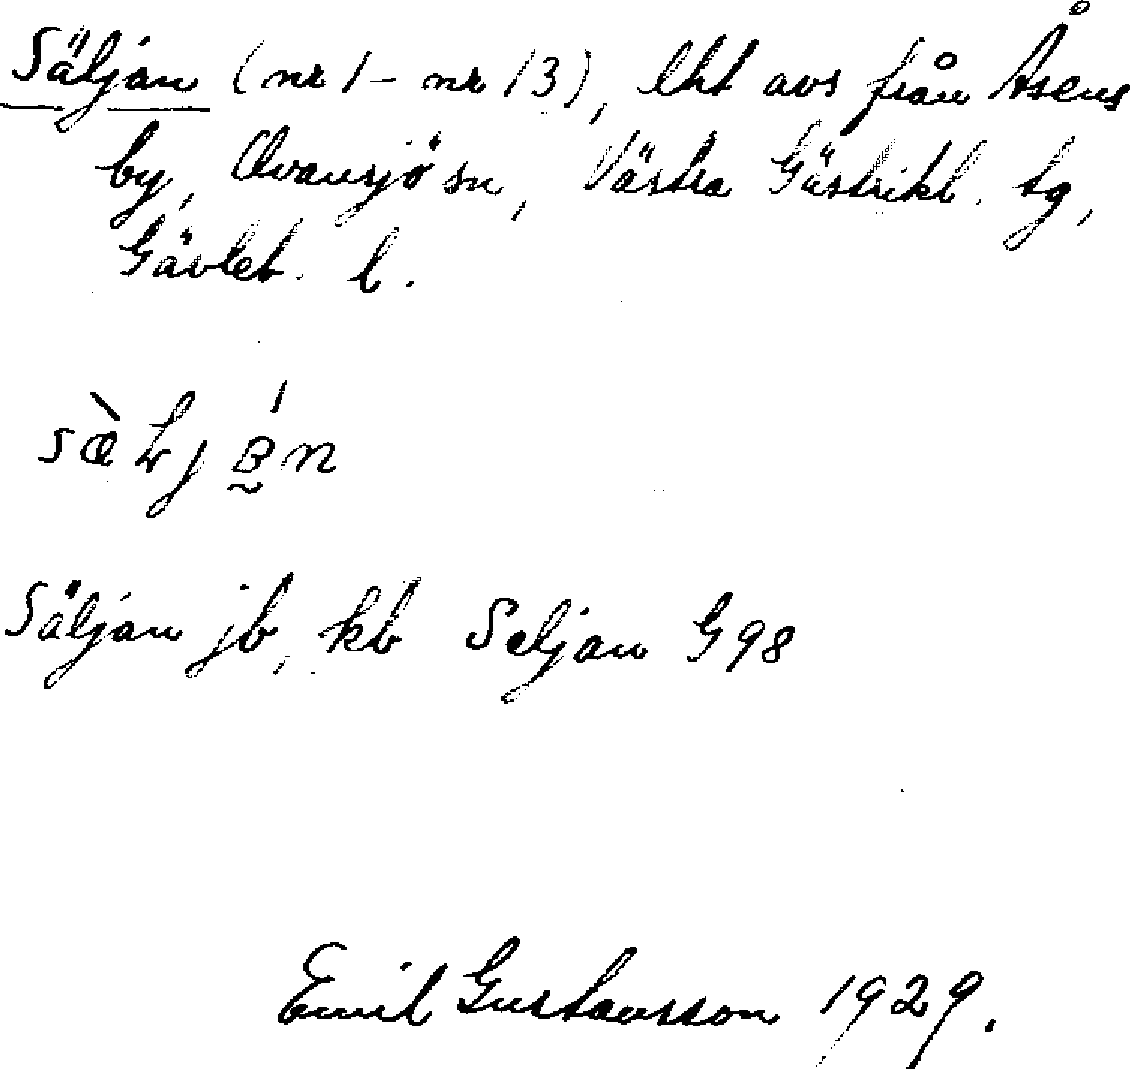 Säljan (nr 1 - nr 13), lht avs från Åsens
by, Ovansjö sn, Västra Gästrikl. tg,
Gävleb. l.
Säljan jb, kb Seljan G 98
Emil Gustavsson 1929.